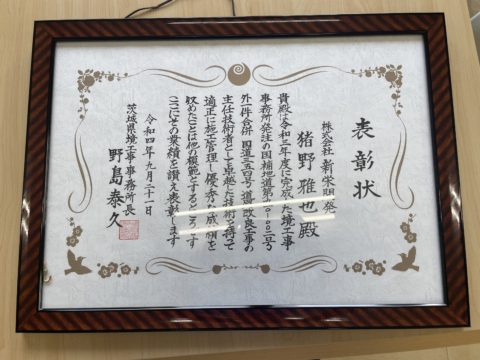 表彰状
株式会社 新栄開発
猪野雅也殿
貴殿は令和三年度に完成した境工事
事務所発注の国補地道第
外一件合併 国道三五四号 道路改良工事の
主任技術者として卓越した技術を持って
適正に施工管理し優秀な成績を
収めたことは他の模範とするところです
ここにその業績を讃え表彰します
令和四年九月二十一日
茨城県境工事事務所長
野島泰久